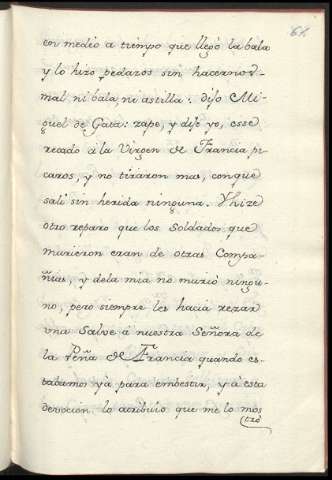 64
en medio a tiempo que llegò la bala
y lo hizo pedazos sin hacernos
mal ni bala, ni astilla: dijo Mi-
guel de Gaeta: zape, y dije yo, esse
recado à la Virgen de Francia pi-
caros, y no tiraron mas, conque
sali sin herida ninguna. Yhize
otro reparo que los Soldados que
murieron eran de otras Compa-
ñias, y dela mia no muriò ningu-
no, pero siempre les hacia rezar
vna Salve à nuestra Señora de
la Peña de Francia quando es-
tabamos ya para embestir, y à esta
devocion lo atribuio que me lo mos
trò